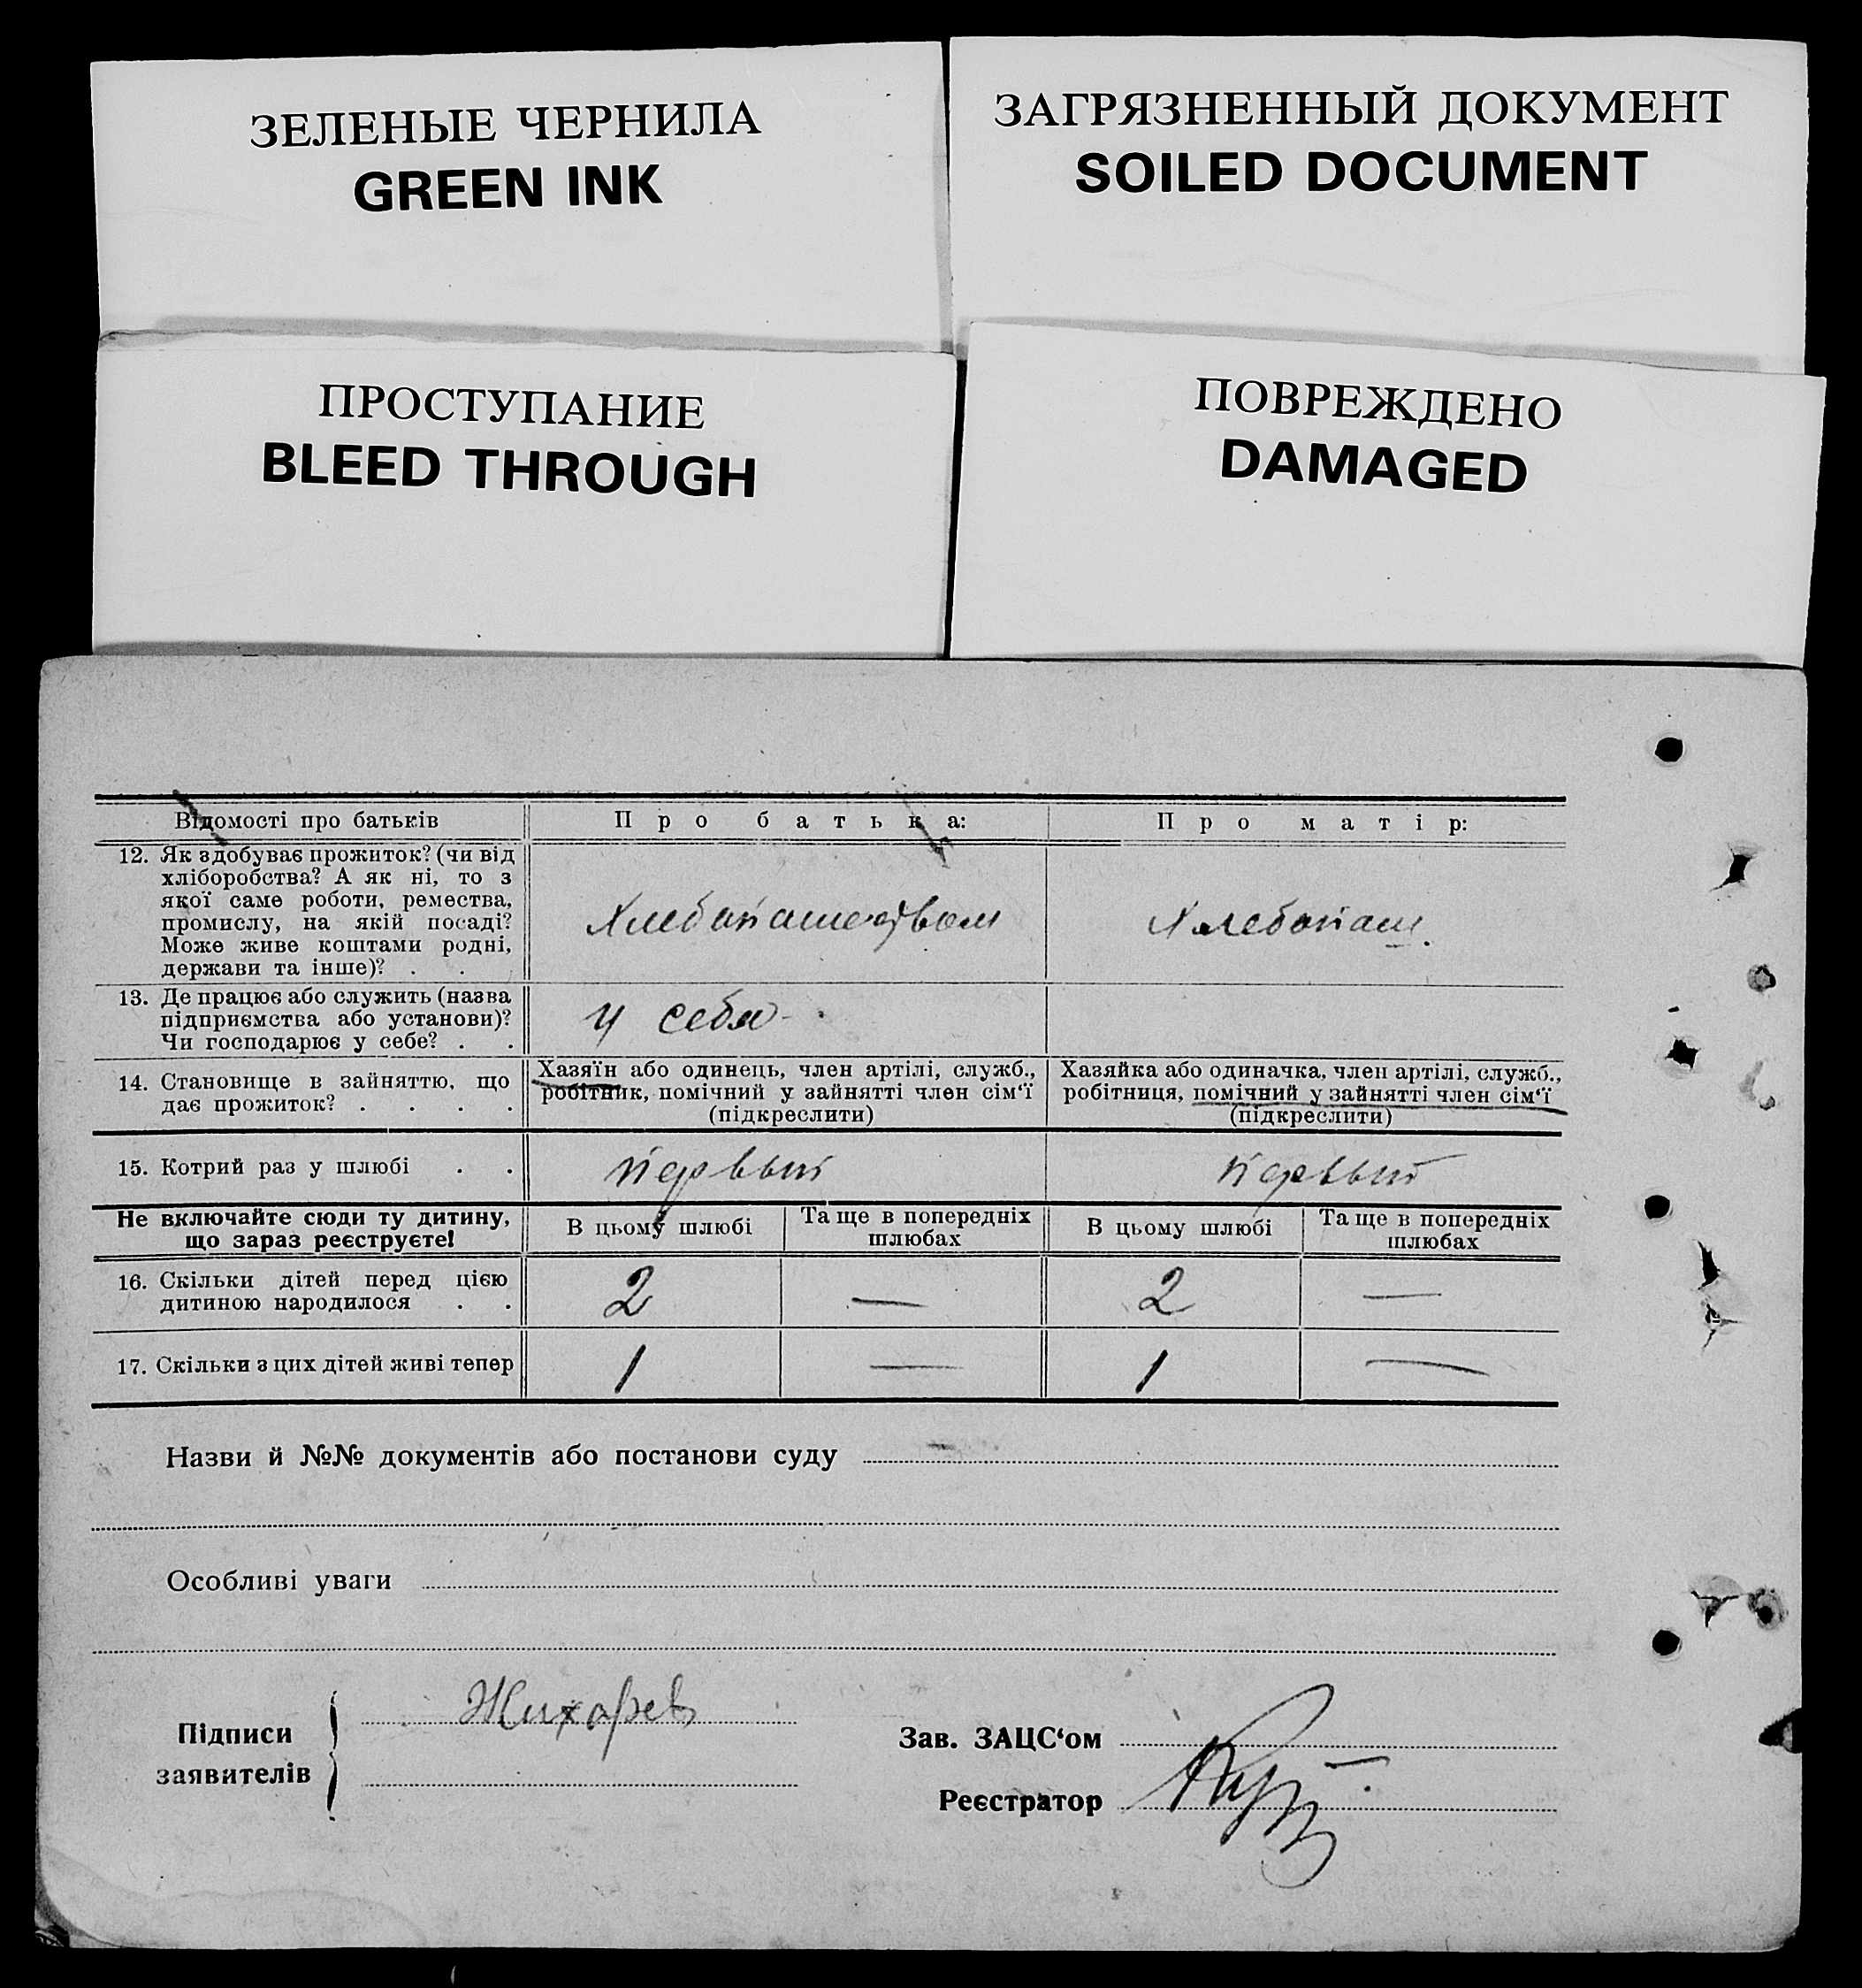 ЗЕЛЕНЫЕ ЧЕРНИЛА
GREEN INK
ЗАГРЯЗНЕННЫЙ ДОКУМЕНТ
SOILED DOCUMENT
ПРОСТУПАНИЕ
BLEED THROUGH
ПОВРЕЖДЕНО
DAMAGED
Відомості про батьків
Про батька:
Про матір:
12. Як здобуває прожиток? (чи від
хліборобства? А як ні, то з
якої саме роботи, ремества,
промислу, на якій посаді?
Може живе коштами родні,
держави та інше)? . .
Хлебопашеством
Хлебопаш.
13. Де працює або служить (назва
підприємства або установи)?
Чи господарює у себе? . .
у себя
14. Становище в зайняттю, що
дає прожиток? . . . .
Хазяїн або одинець, член артілі, служб.,
робітник, помічний у зайнятті член сім‘ї
(підкреслити)
Хазяйка або одиначка, член артілі, служб.,
робітниця, помічний у зайнятті член сім‘ї
(підкреслити)
15. Котрий раз у шлюбі . .
первый
первый
Не включайте сюди ту дитину,
що зараз реєструєте!
В цьому шлюбі
Та ще в попередніх
шлюбах
В цьому шлюбі
Та ще в попередніх
шлюбах
16. Скільки дітей перед цією
дитиною народилося . .
2
—
2
—
17. Скільки з цих дітей живі тепер
1
—
1
—
Назви й №№ документів або постанови суду
Особливі уваги
Підписи
заявителів
Жихарев
Зав. ЗАЦС‘ом
Реєстратор